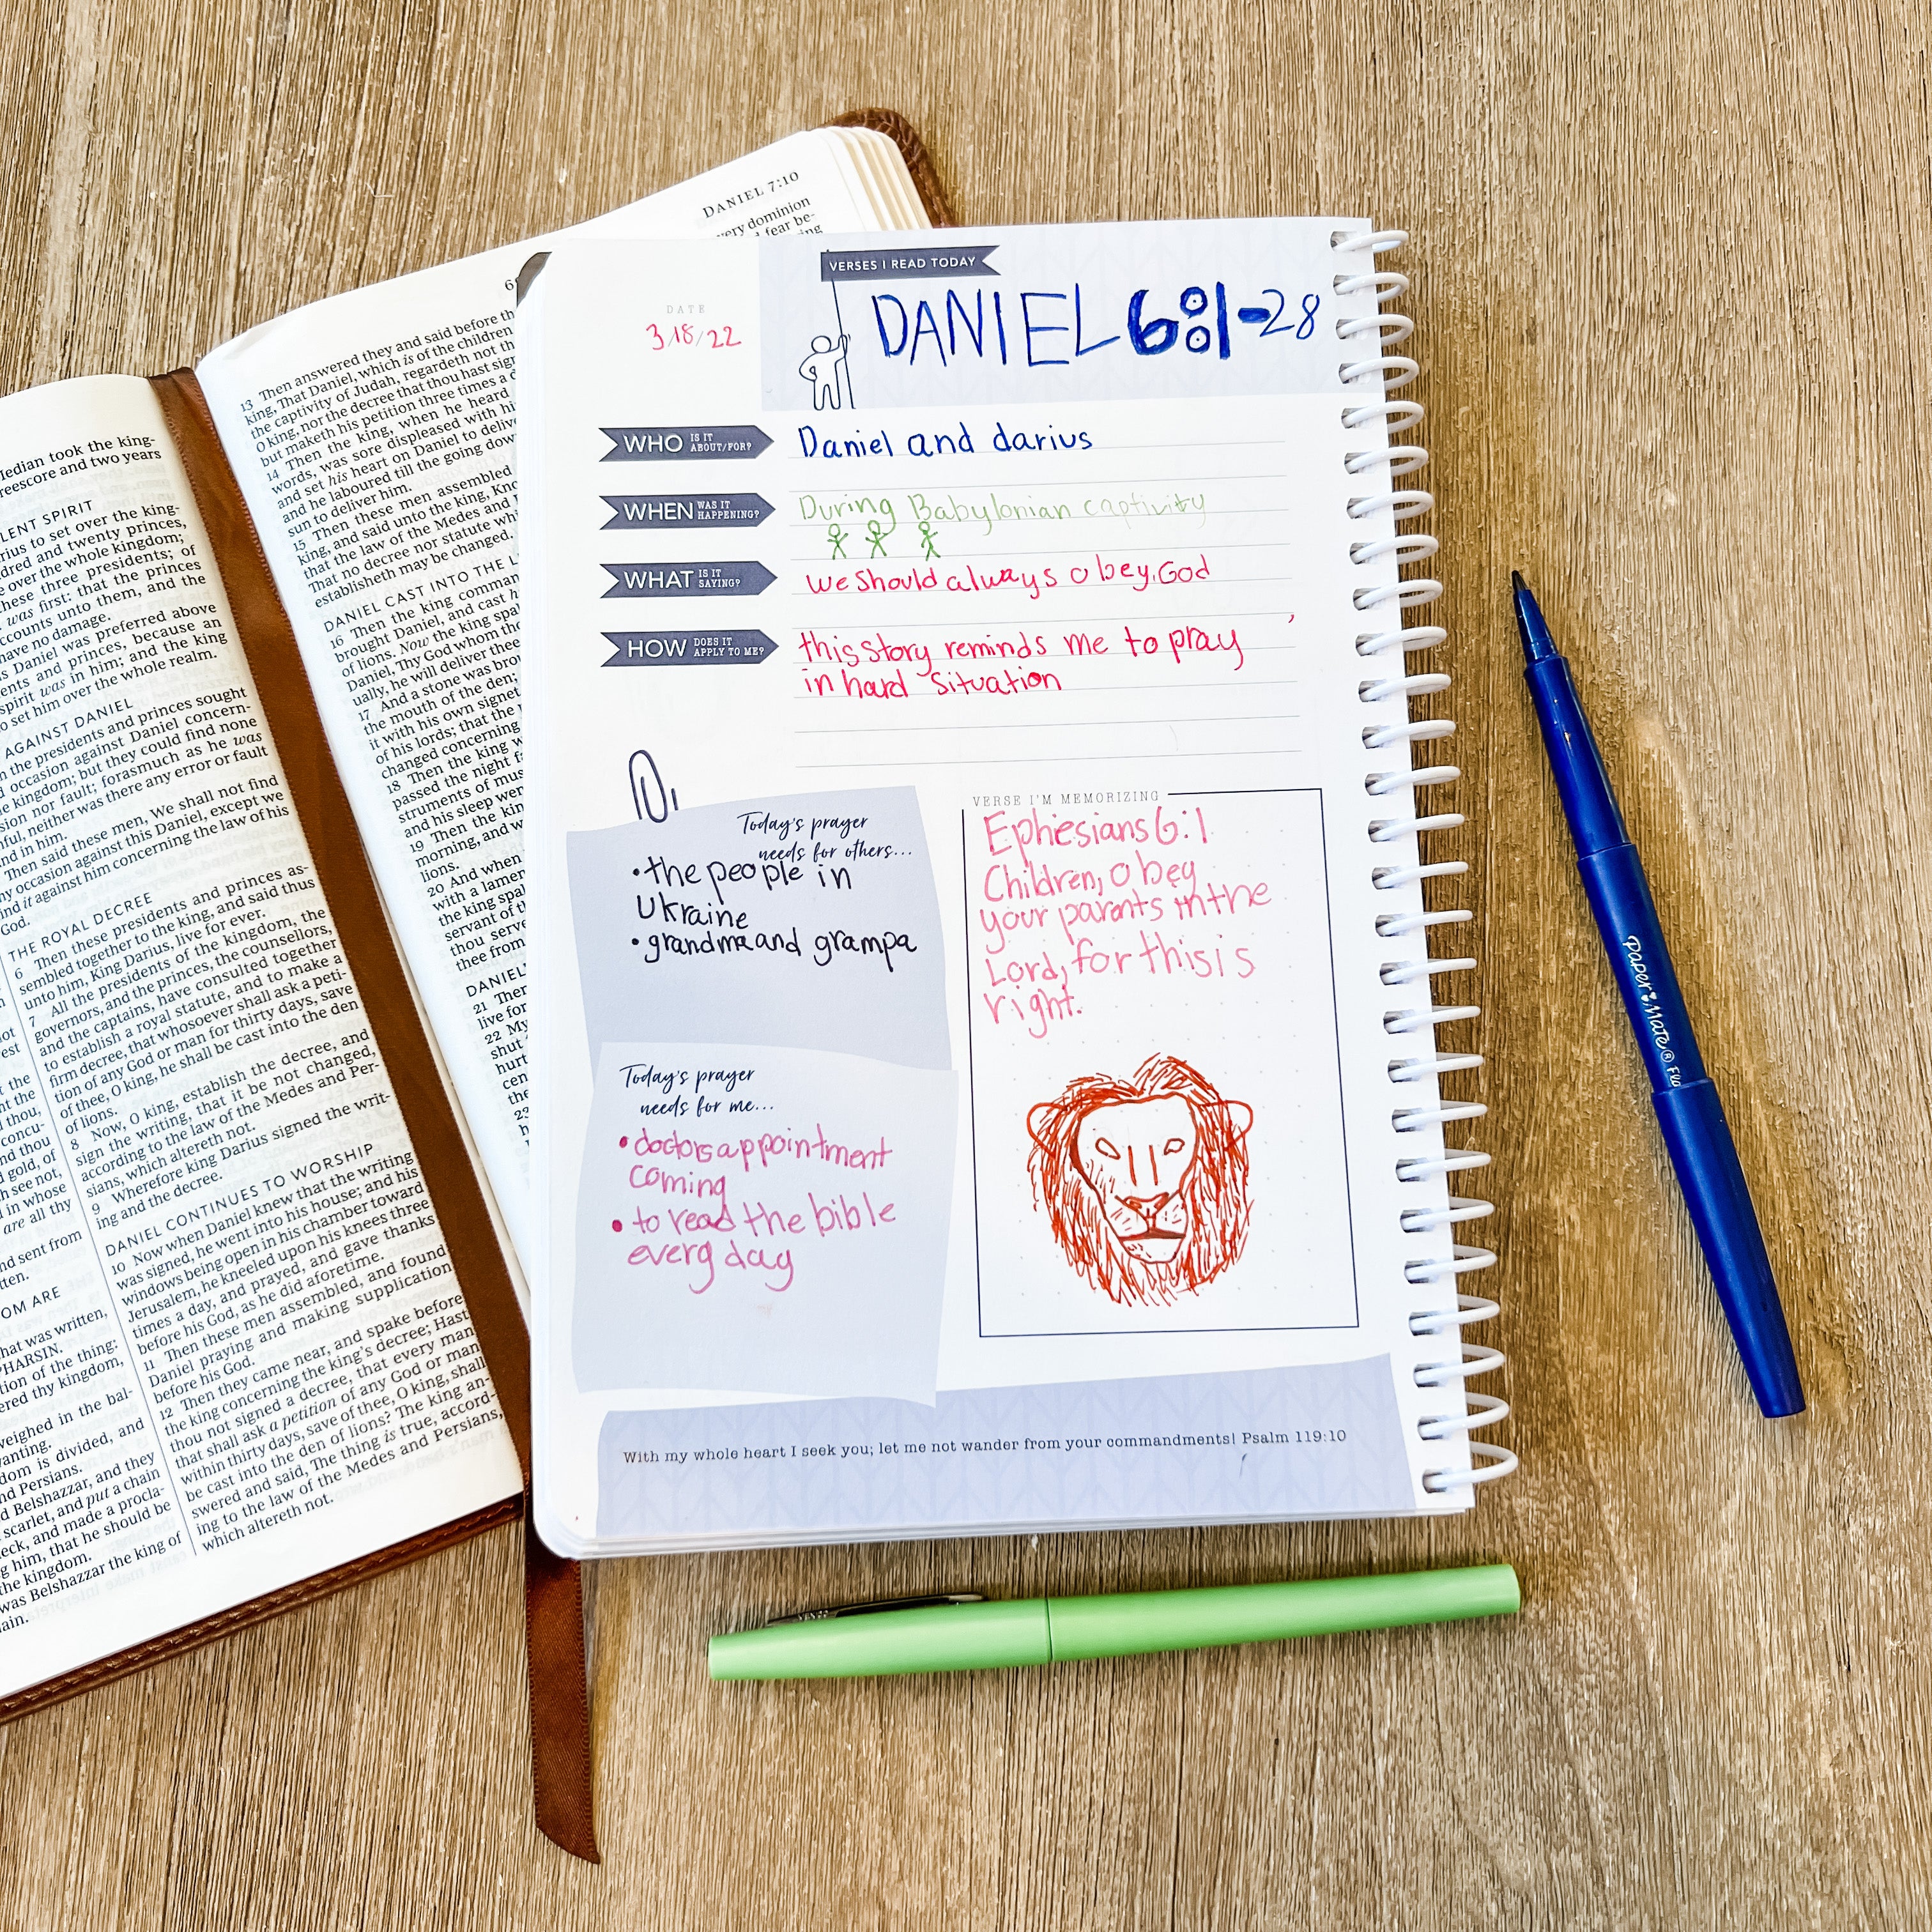 ledian took the king-
reescore and two years
LENT SPIRIT
rius to set over the king-
dred and twenty princes,
e over the whole kingdom;
hese three presidents; of
was first: that the princes
ccounts unto them, and the
have no damage.
s Daniel was preferred above
ents and princes, because an
spirit was in him; and the king
o set him over the whole realm.
AGAINST DANIEL
n the presidents and princes sought
occasion against Daniel concern-
e kingdom; but they could find none
sion nor fault; forasmuch as he was
ful, neither was there any error or fault
nd in him.
Then said these men, We shall not find
ny occasion against this Daniel, except we
ind it against him concerning the law of his
God.
THE ROYAL DECREE
6 Then these presidents and princes as-
sembled together to the king, and said thus
unto him, King Darius, live for ever.
7 All the presidents of the kingdom, the
governors, and the princes, the counsellors,
and the captains, have consulted together
to establish a royal statute, and to make a
firm decree, that whosoever shall ask a peti-
tion of any God or man for thirty days, save
of thee, O king, he shall be cast into the den
of lions.
8 Now, O king, establish the decree, and
sign the writing, that it be not changed,
according to the law of the Medes and Per-
sians, which altereth not.
9 Wherefore king Darius signed the writ-
ing and the decree.
DANIEL CONTINUES TO WORSHIP
10 Now when Daniel knew that the writing
was signed, he went into his house; and his
windows being open in his chamber toward
Jerusalem, he kneeled upon his knees three
times a day, and prayed, and gave thanks
before his God, as he did aforetime.
11 Then these men assembled, and found
Daniel praying and making supplication
before his God.
12 Then they came near, and spake before
the king concerning the king's decree; Hast
thou not signed a decree, that every man
that shall ask a petition of any God or man
within thirty days, save of thee, O king, shall
be cast into the den of lions? The king an-
swered and said, The thing is true, accord-
ing to the law of the Medes and Persians,
which altereth not.
DANIEL 7:10
very dominion
d fear be-
13 Then answered they and said before th
king, That Daniel, which is of the children
the captivity of Judah, regardeth not th
O king, nor the decree that thou hast sig
but maketh his petition three times a d
14 Then the king, when he heard
words, was sore displeased with hi
and set his heart on Daniel to delive
and he laboured till the going dow
sun to deliver him.
15 Then these men assembled
king, and said unto the king, Kno
that the law of the Medes and P
That no decree nor statute whi
establisheth may be changed.
DANIEL CAST INTO THE L
16 Then the king comman
brought Daniel, and cast h
of lions. Now the king spa
Daniel, Thy God whom tho
ually, he will deliver thee
17 And a stone was brou
the mouth of the den;
it with his own signet
of his lords; that the
changed concerning
18 Then the king w
passed the night f
struments of mus
and his sleep wen
19 Then the kin
morning, and w
lions.
20 And when
with a lamen
the king spa
servant of t
thou serve
thee from
DANIEL
21 Ther
live for
22 My
shut
hurt
cen
the
23
VERSES I READ TODAY
DATE
3/18/22
DANIEL 6:1-28
WHO IS IT ABOUT/FOR? Daniel and darius
WHEN WAS IT HAPPENING? During Babylonian captivity
WHAT IS IT SAYING? we should always obey God
HOW DOES IT APPLY TO ME? this story reminds me to pray
in hard situation
Today's prayer
needs for others...
• the people in
Ukraine
• grandma and grampa
Today's prayer
needs for me...
• doctors appointment
coming
• to read the bible
every day
VERSE I'M MEMORIZING
Ephesians 6:1
Children, obey
your parents in the
Lord, for this is
right.
With my whole heart I seek you; let me not wander from your commandments! Psalm 119:10
Paper Mate® Fla